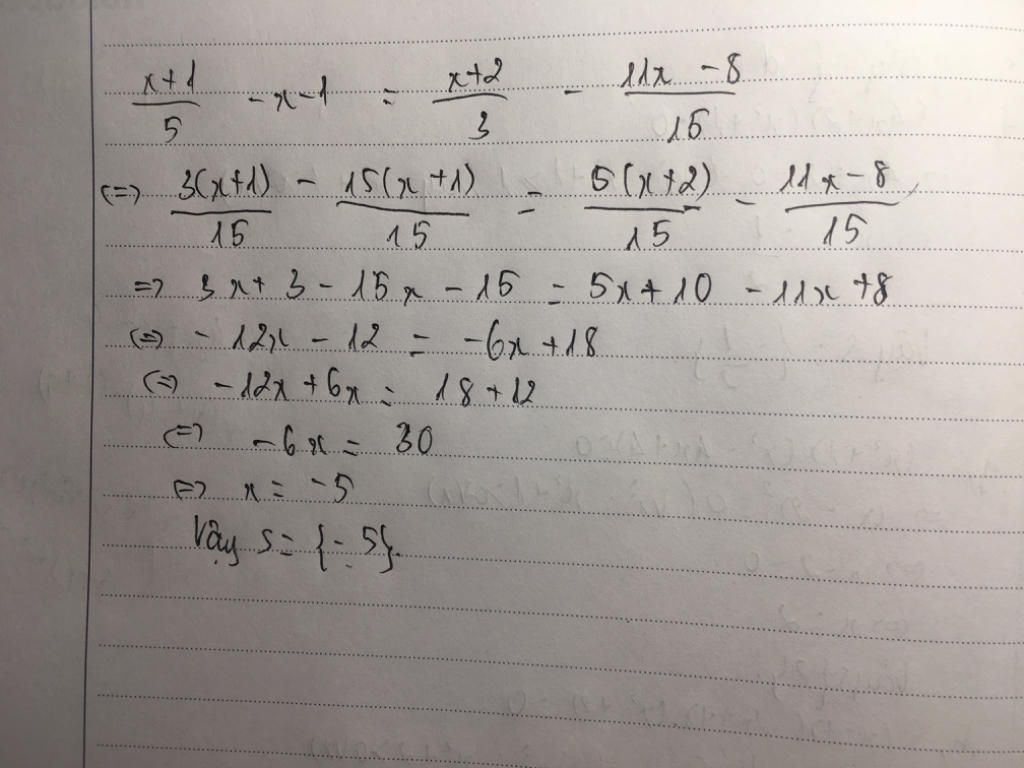 x+1/5 - x - 1 = x+2/3 - 11x - 8/15
(=) 3(x+1)/15 - 15(x+1)/15 = 5(x+2)/15 - 11x - 8/15
=> 3x + 3 - 15x - 15 = 5x + 10 - 11x + 8
(=) - 12x - 12 = -6x + 18
(=) - 12x + 6x = 18 + 12
(=) - 6x = 30
(=) x = -5
Vậy S = {- 5}.